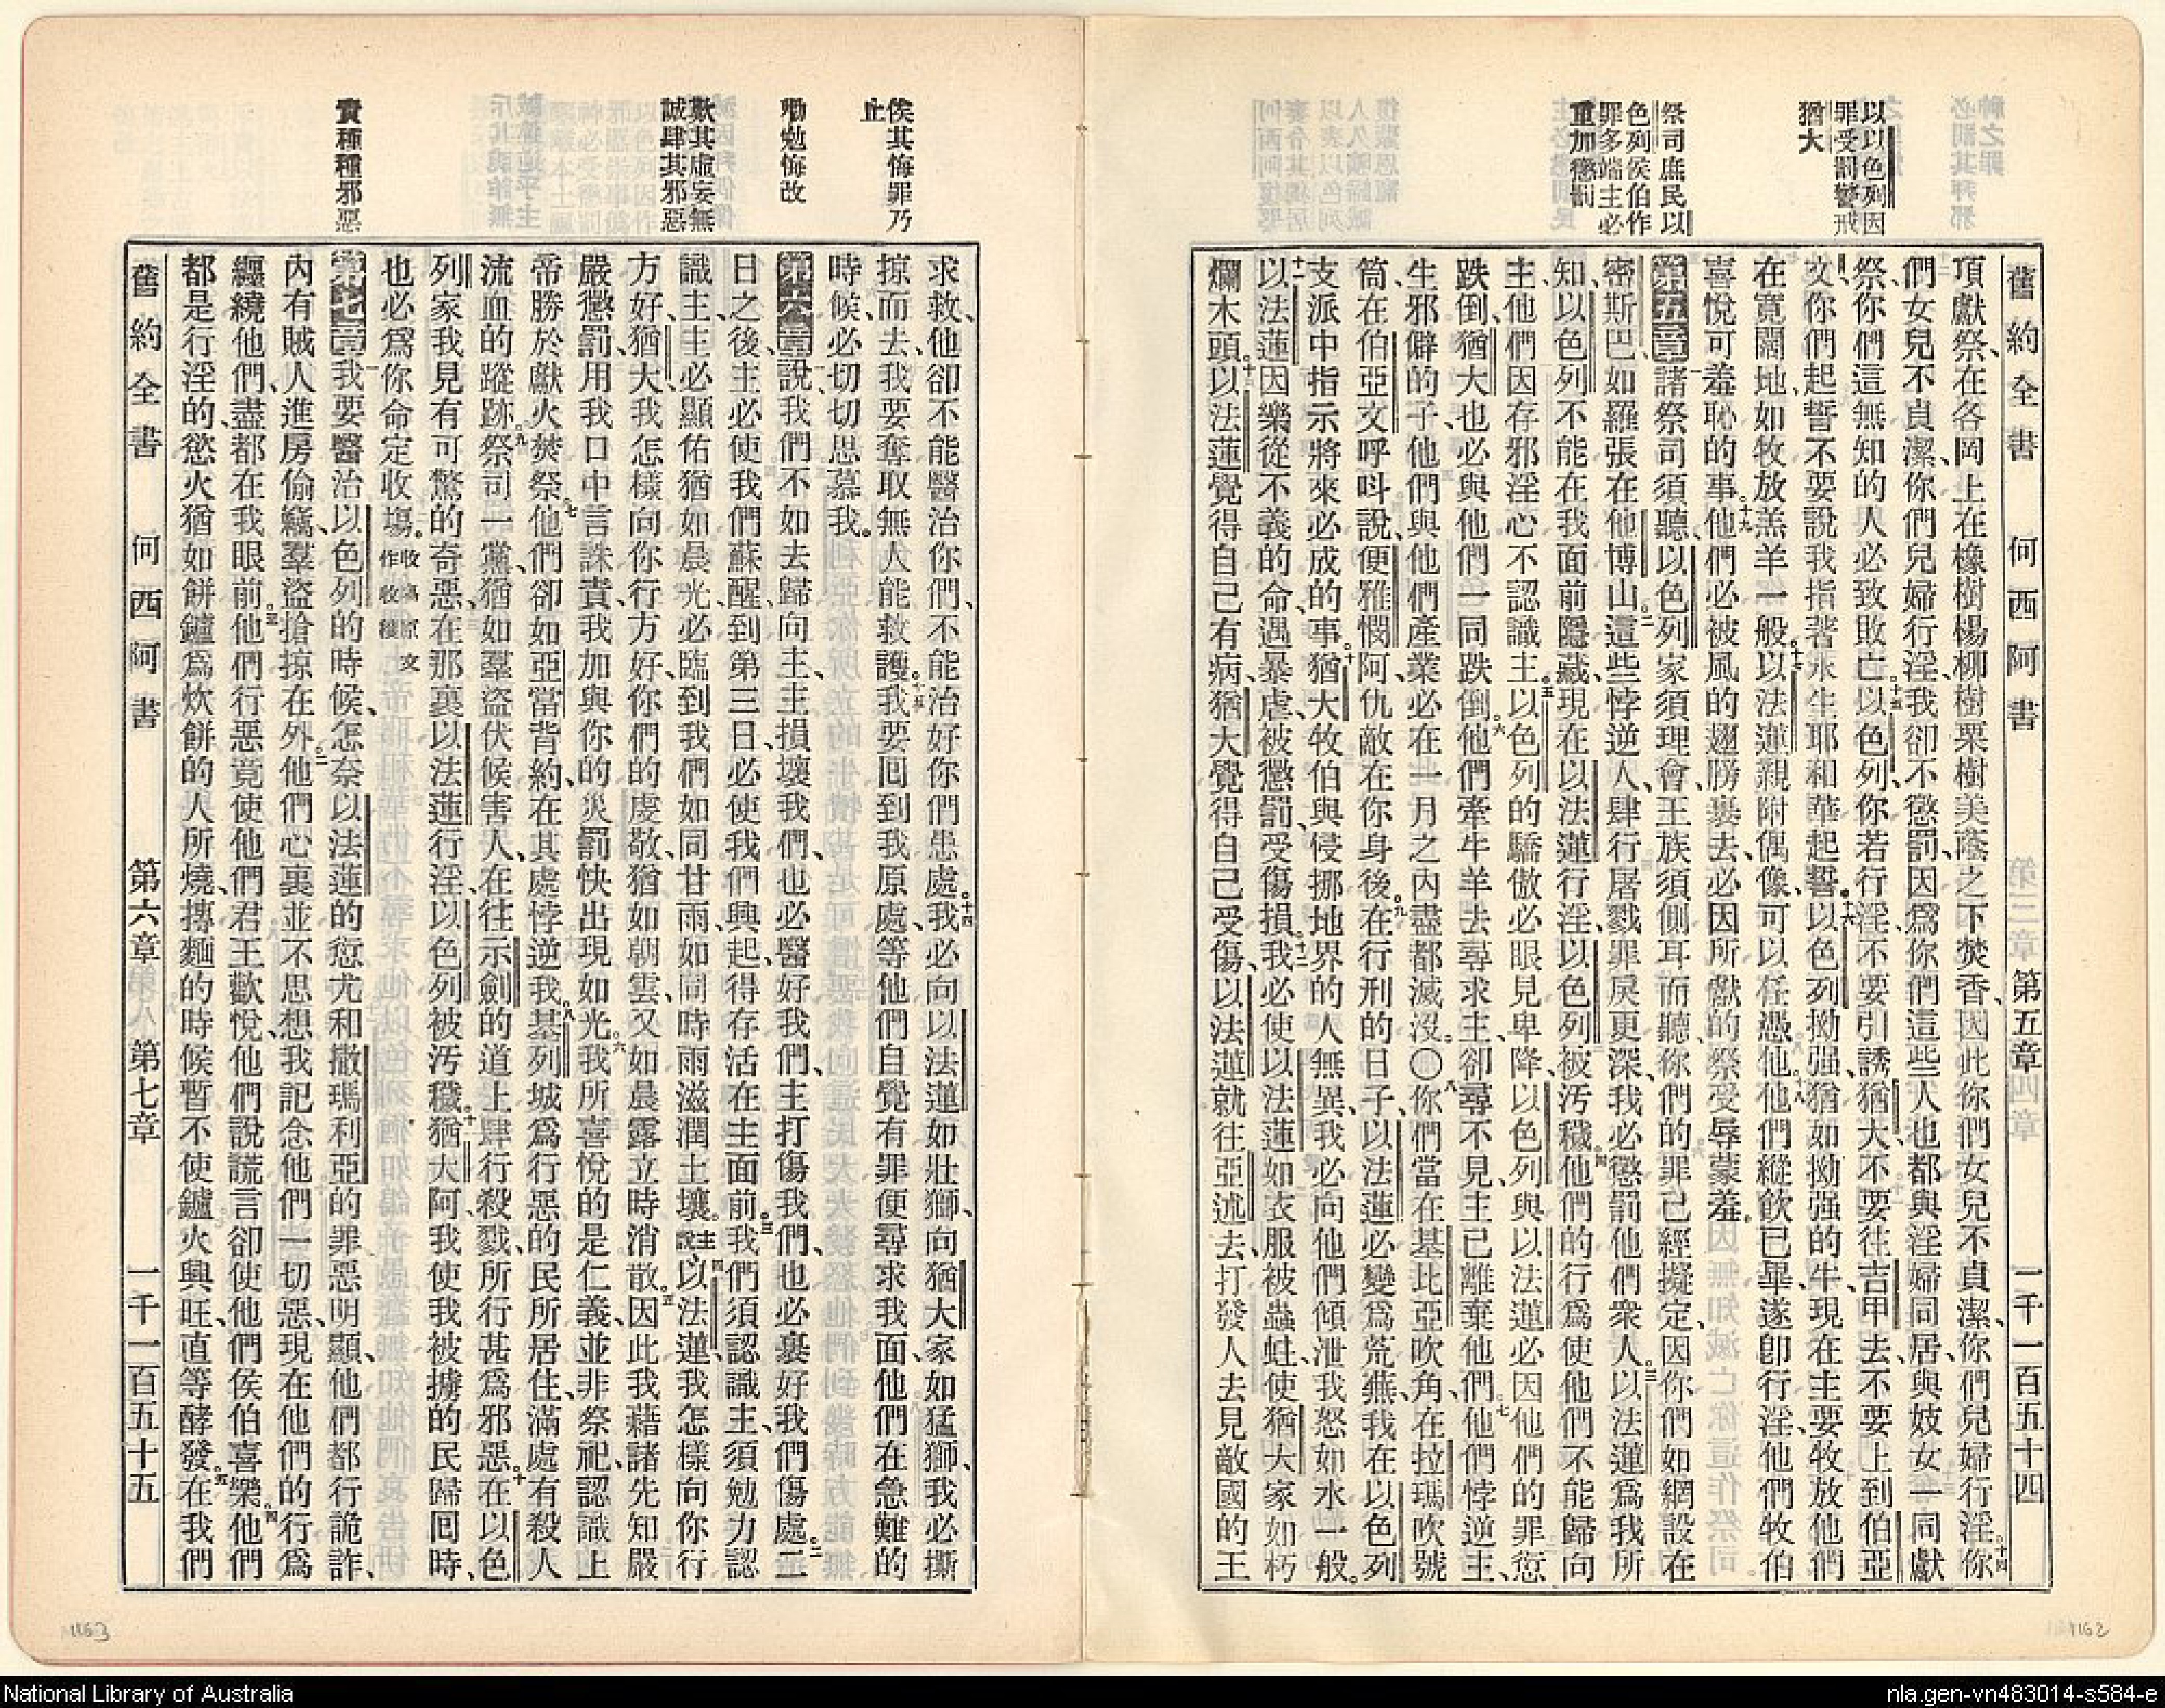 舊約全書 何西阿書 第五章 一千一百五十四
以以色列因
罪受罰警戒
猶大
祭司庶民以
色列侯伯作
罪多端主必
重加懲罰
頂獻祭、在各岡上在橡樹楊柳樹栗樹美蔭之下焚香、因此你們女兒不貞潔、你們兒婦行淫。十四你
們女兒不貞潔、你們兒婦行淫、我卻不懲罰、因爲你們這些人也都與淫婦同居、與妓女一同獻
祭、你們這無知的人必致敗亡。十五以色列、你若行淫、不要引誘猶大、不要往吉甲去、不要上到伯亞
文、你們起誓不要說我指著永生耶和華起誓。十六以色列拗强、猶如拗强的牛、現在主要牧放他們
在寬闊地、如牧放羔羊一般。十七以法蓮親附偶像、可以任憑他。十八他們縱飲已畢、遂卽行淫、他們牧伯
喜悅可羞恥的事。十九他們必被風的翅膀裹去、必因所獻的祭受辱蒙羞。
第五章 一諸祭司須聽、以色列家須理會、王族須側耳而聽、你們的罪已經擬定、因你們如網設在
密斯巴、如羅張在他博山。二這些悖逆人、肆行屠戮罪戾更深、我必懲罰他們衆人。三以法蓮爲我所
知、以色列不能在我面前隱藏、現在以法蓮行淫、以色列被汚穢。四他們的行爲使他們不能歸向
主、他們因存邪淫心不認識主。五以色列的驕傲必眼見卑降、以色列與以法蓮必因他們的罪愆
跌倒、猶大也必與他們一同跌倒。六他們牽牛羊去尋求主、卻尋不見、主已離棄他們。七他們悖逆主、
生邪僻的子、他們與他們產業必在一月之內盡都滅沒。〇八你們當在基比亞吹角、在拉瑪吹號
筒、在伯亞文呼呌說、便雅憫阿、仇敵在你身後。九在行刑的日子、以法蓮必變爲荒蕪、我在以色列
支派中指示將來必成的事。十猶大牧伯與侵挪地界的人無異、我必向他們傾泄我怒如水一般。
十一以法蓮因樂從不義的命、遇暴虐、被懲罰、受傷損。十二我必使以法蓮如衣服被蟲蛀、使猶大家如朽
爛木頭。十三以法蓮覺得自己有病、猶大覺得自己受傷、以法蓮就往亞述去、打發人去見敵國的王
俟其悔罪乃
止
勸勉悔改
歎其虛妄無
誠肆其邪惡
責種種邪惡
求救、他卻不能醫治你們、不能治好你們患處。十四我必向以法蓮如壯獅、向猶大家如猛獅、我必撕
掠而去、我要奪取無人能救護。十五我要囘到我原處、等他們自覺有罪便尋求我面、他們在急難的
時候、必切切思慕我。
第六章 一說、我們不如去歸向主、主損壞我們、也必醫好我們、主打傷我們、也必裹好我們傷處。二二
日之後、主必使我們蘇醒、到第三日、必使我們興起、得存活在主面前。三我們須認識主、須勉力認
識主、主必顯佑猶如晨光、必臨到我們如同甘雨、如同時雨滋潤土壤。主說、四以法蓮、我怎樣向你行
方好、猶大、我怎樣向你行方好、你們的虔敬、猶如朝雲、又如晨露立時消散。五因此我藉諸先知嚴
嚴懲罰、用我口中言誅責、我加與你的災罰快出現如光。六我所喜悅的是仁義、並非祭祀、認識上
帝勝於獻火焚祭。七他們卻如亞當背約、在其處悖逆我。八基列城爲行惡的民所居住、滿處有殺人
流血的蹤跡。九祭司一黨、猶如羣盜伏候害人、在往示劍的道上肆行殺戮、所行甚爲邪惡。十在以色
列家我見有可驚的奇惡、在那裏以法蓮行淫、以色列被汚穢。十一猶大阿、我使我被擄的民歸囘時、
也必爲你命定收塲。收塲原文作收穫
第七章 一我要醫治以色列的時候、怎奈以法蓮的愆尤和撒瑪利亞的罪惡明顯、他們都行詭詐、
內有賊人進房偷竊、羣盜搶掠在外。二他們心裏並不思想我記念他們一切惡、現在他們的行爲
纏繞他們、盡都在我眼前。三他們行惡竟使他們君王歡悅、他們說謊言卻使他們侯伯喜樂。四他們
都是行淫的、慾火猶如餅鑪爲炊餅的人所燒、摶麵的時候暫不使鑪火興旺、直等酵發。五在我們
舊約全書 何西阿書 第六章 第七章 一千一百五十五
1163
1162
National Library of Australia
nla.gen-vn483014-s584-e